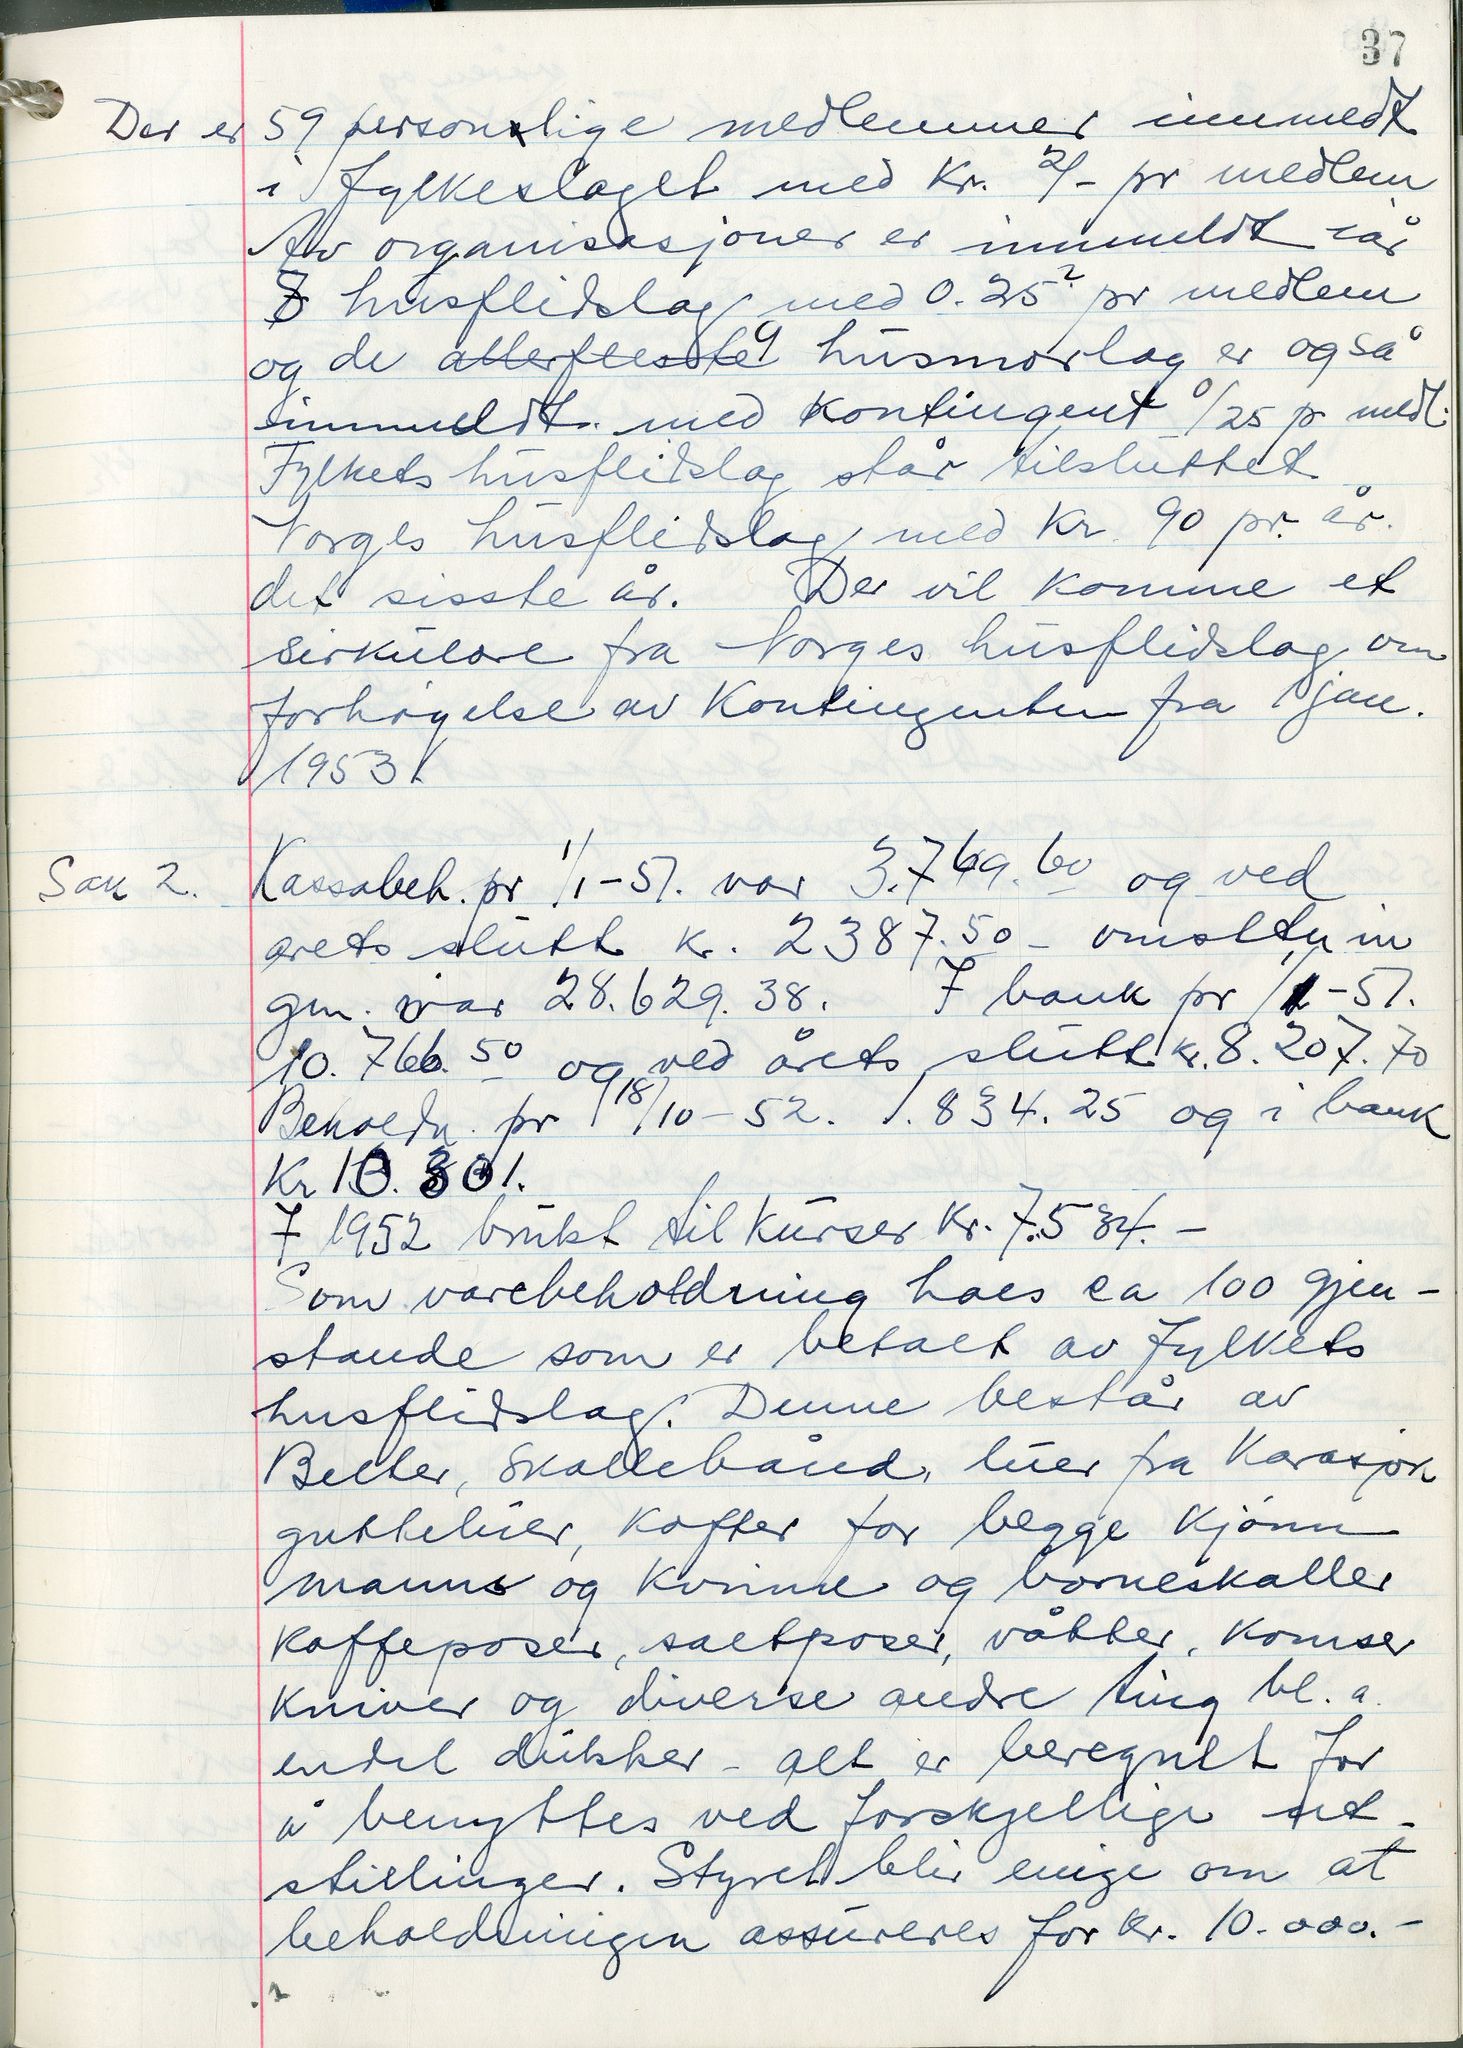 37
Der er 59 personlige medlemmer innmeldt
i fylkeslaget med Kr. 2/- pr medlem
Av organisasjoner er innmeldt iår
8 husflidslag med 0.25 pr medlem
og de allerfleste 9 husmorlag er også
innmeldt. med kontingent 0/25 p medl.
Fylkets husflidslag står tilsluttet
Norges husflidslag med Kr. 90 pr. år.
det sisste år. Der vil komme et
sirkulære fra Norges husflidslag om
forhøgelse av Kontingenten fra 1 jan.
1953.
Sak 2. Kassabeh. pr 1/1-51. var 3.769.60 og ved
årets slutt kr. 2387.50 - omsetnin
gen. var 28.629.38. I bank pr 1/1-51.
10.766.50 og ved årets slutt kr. 8.207.70
Beholdn. pr 18/10-52. 1.834.25 og i bank
Kr 10.301.
I 1952 brukt til kurser Kr. 7.534.-
Som varebeholdning haes ca 100 gjen-
stande som er betalt av fylkets
husflidslag. Denne består av
Belter, skallebånd, luer fra Karasjok
gutteluer, kofter for begge kjønn
manns og kvinne og barneskaller
kaffeposer, saltposer, våtter, komser
kniver og diverse andre ting bl. a.
endel dukker - alt er beregnet for
å benyttes ved forskjellige ut-
stillinger. Styret blir enige om at
beholdningen assureres for kr. 10.000.-